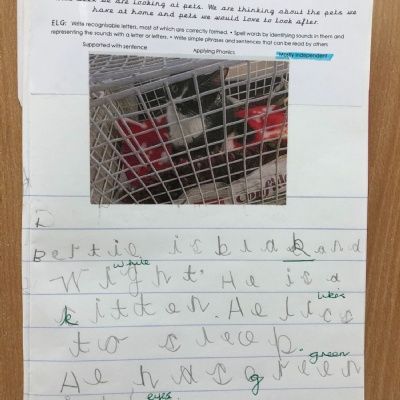 we are looking at pets. We are thinking about the pets we
have at home and pets we would love to look after.
ELG: Write recognisable letters, most of which are correctly formed. • Spell words by identifying sounds in them and
representing the sounds with a letter or letters. • Write simple phrases and sentences that can be read by others
Supported with sentence Applying Phonics Mostly Independent
Bertie is blak and
white
Wight. He is a
likes
kitten. He lics
to sleep.
green
He has green
eyes